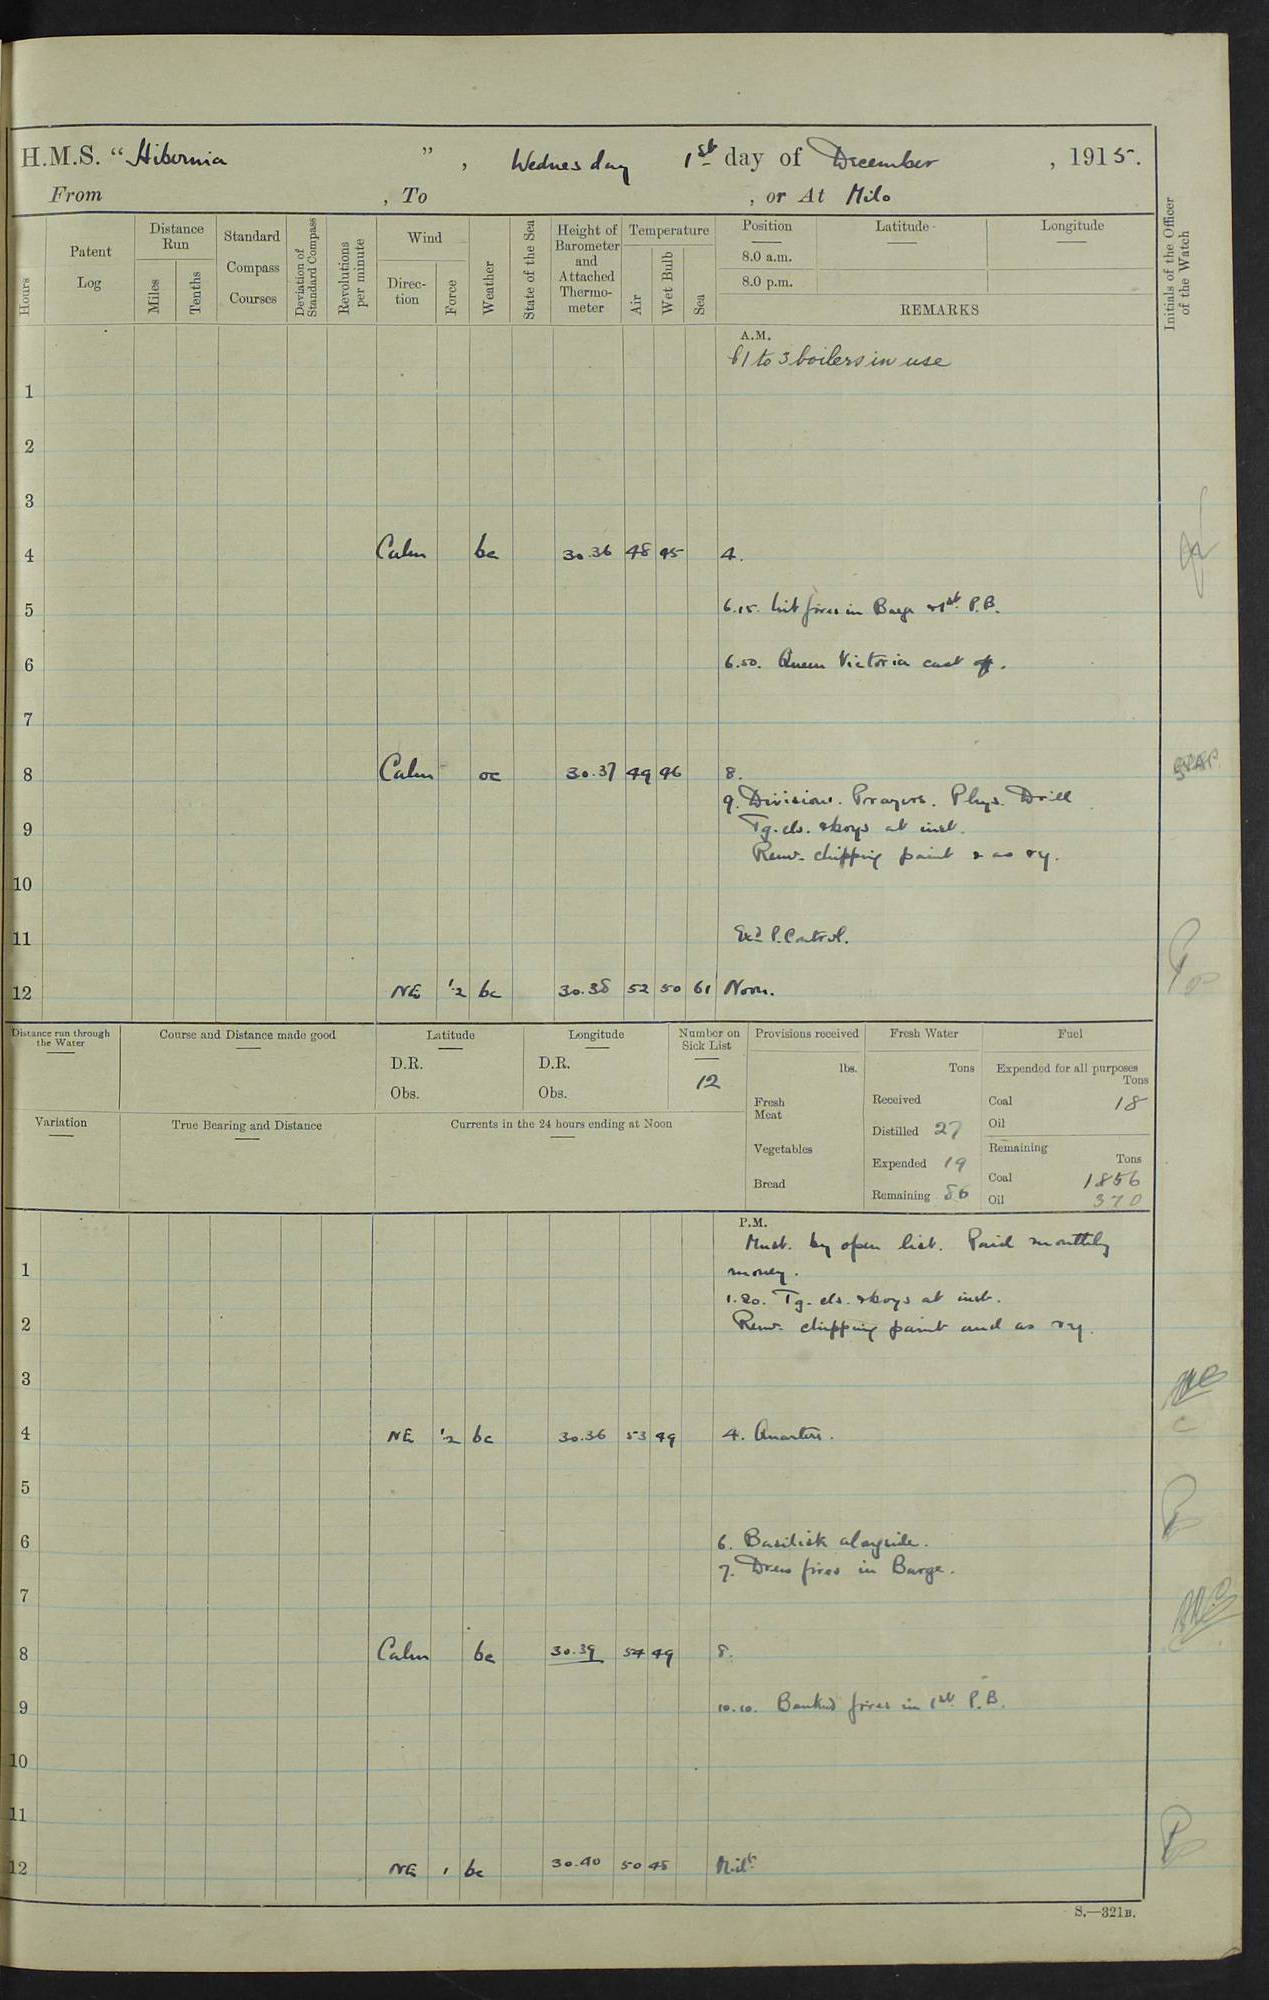 H.M.S. "Hibernia", Wednesday 1st day of December, 1915.
From , To , or At Milo
Hours
Patent Log
Distance Run
Miles
Tenths
Standard Compass Courses
Deviation of Standard Compass
Revolutions per minute
Wind
Direc-tion
Force
Weather
State of the Sea
Height of Barometer and Attached Thermo-meter
Temperature
Air
Wet Bulb
Sea
Position
8.0 a.m.
8.0 p.m.
Latitude
Longitude
REMARKS
Initials of the Officer of the Watch
A.M.
1 to 3 boilers in use
1
2
3
4 Calm bc 30.36 48 45 4.
5 6.15. Lit fires in Barge & 1st P.B.
6 6.50. Queen Victoria cast off.
7
8 Calm oc 30.37 49 46 8.
9. Divisions. Prayers. Phys. Drill
9 Tg. cls. & boys at inst.
Remr. chipping paint & as ry.
10
11 Exd P. Control.
12 NE 1.2 bc 30.38 52 50 61 Noon.
Distance run through the Water
Course and Distance made good
Latitude
D.R.
Obs.
Longitude
D.R.
Obs.
Number on Sick List
12
Provisions received
lbs.
Fresh Meat
Vegetables
Bread
Fresh Water
Tons
Received
Distilled 27
Expended 19
Remaining 86
Fuel
Expended for all purposes
Tons
Coal 18
Oil
Remaining
Tons
Coal 1856
Oil 370
Variation
True Bearing and Distance
Currents in the 24 hours ending at Noon
P.M.
Must. by open list. Paid monthly
1 money.
1.20. Tg. cls. & boys at inst.
2 Remr. chipping paint and as ry.
3
4 NE 1.2 bc 30.36 53 49 4. Quarters.
5
6 6. Basilisk alongside.
7. Drew fires in Barge.
7
8 Calm bc 30.39 54 49 8.
9 10.10. Banked fires in 1st P.B.
10
11
12 NE 1 bc 30.40 50 48 Midt.
S.—321B.